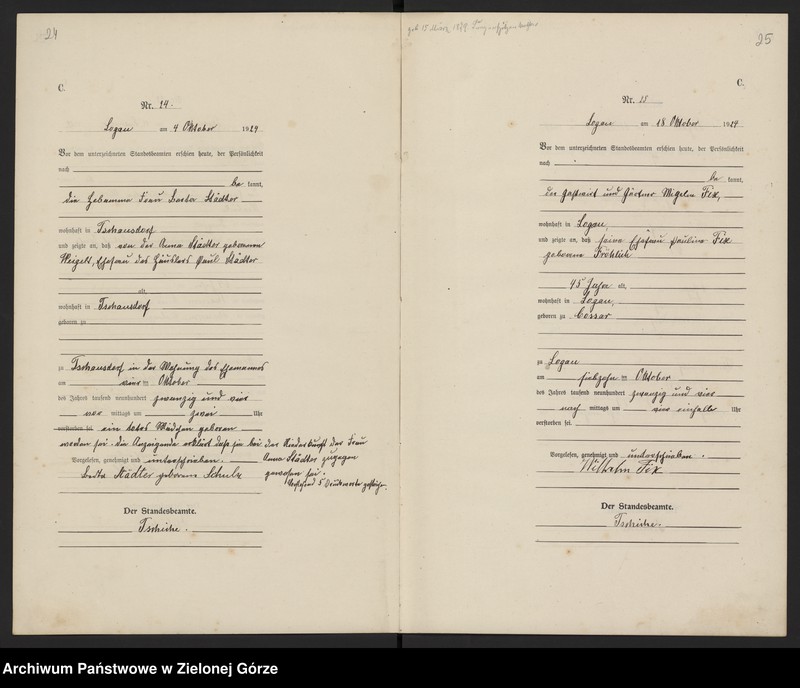 24
C.
Nr. 24.
Logau am 4 Oktober 1924
Vor dem unterzeichneten Standesbeamten erschien heute, der Persönlichkeit
nach
be kannt,
die Hebamme Frau Städter
wohnhaft in Tschausdorf
und zeigte an, daß von der Anna Städter geborenen
Weigelt, Ehefrau des Häuslers Paul Städter
alt,
wohnhaft in Tschausdorf
geboren zu
zu Tschausdorf in der Wohnung des Ehemannes
am vier ten Oktober
des Jahres tausend neunhundert zwanzig und vier
vor mittags um zwei Uhr
verstorben sei ein totes Mädchen geboren
worden sei. Die Anzeigende erklärt daß sie bei der Niederkunft der Frau
Anna Städter zugegen
gewesen sei.
Vorstehend 5 Druckworte gestrichen.
Vorgelesen, genehmigt und unterschrieben.
Städter geborene Schulz
Der Standesbeamte.
Tschirke.
geb. 15 März 1879
25
C.
Nr. 25
Logau am 18 Oktober 1924
Vor dem unterzeichneten Standesbeamten erschien heute, der Persönlichkeit
nach
be kannt,
der Gastwirt und Gärtner Wilhelm Fix,
wohnhaft in Logau,
und zeigte an, daß seine Ehefrau Pauline Fix
geborene Fröhlich
45 Jahre alt,
wohnhaft in Logau,
geboren zu Cossar
zu Logau
am siebzehn ten Oktober
des Jahres tausend neunhundert zwanzig und vier
nach mittags um vier einhalb Uhr
verstorben sei.
Vorgelesen, genehmigt und unterschrieben.
Wilhelm Fix
Der Standesbeamte.
Tschirke.
Archiwum Państwowe w Zielonej Górze